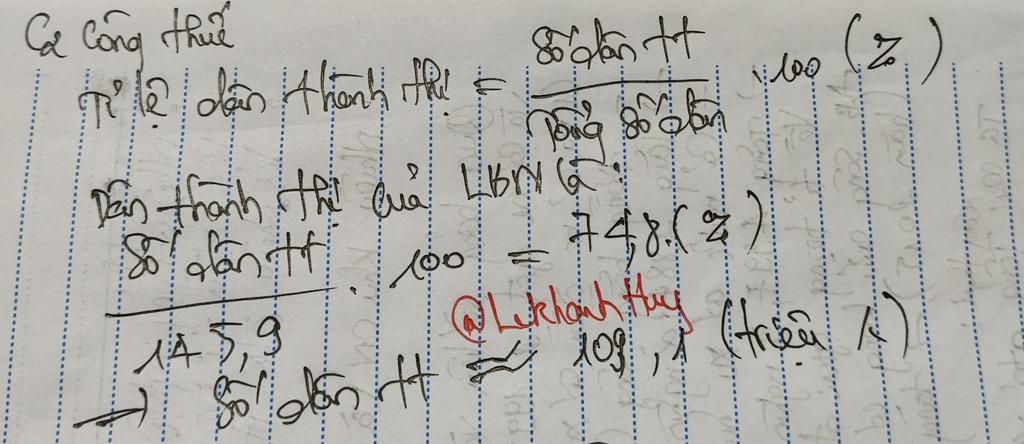 Có công thức
Tỉ lệ dân thành thị = Số dân tt / Tổng số dân . 100 (%)
Dân thành thị của LBN là:
Số dân tt / 145,9 . 100 = 74,8.(%)
@Lekhanhthuy
→ Số dân tt ≈ 109,1 (triệu